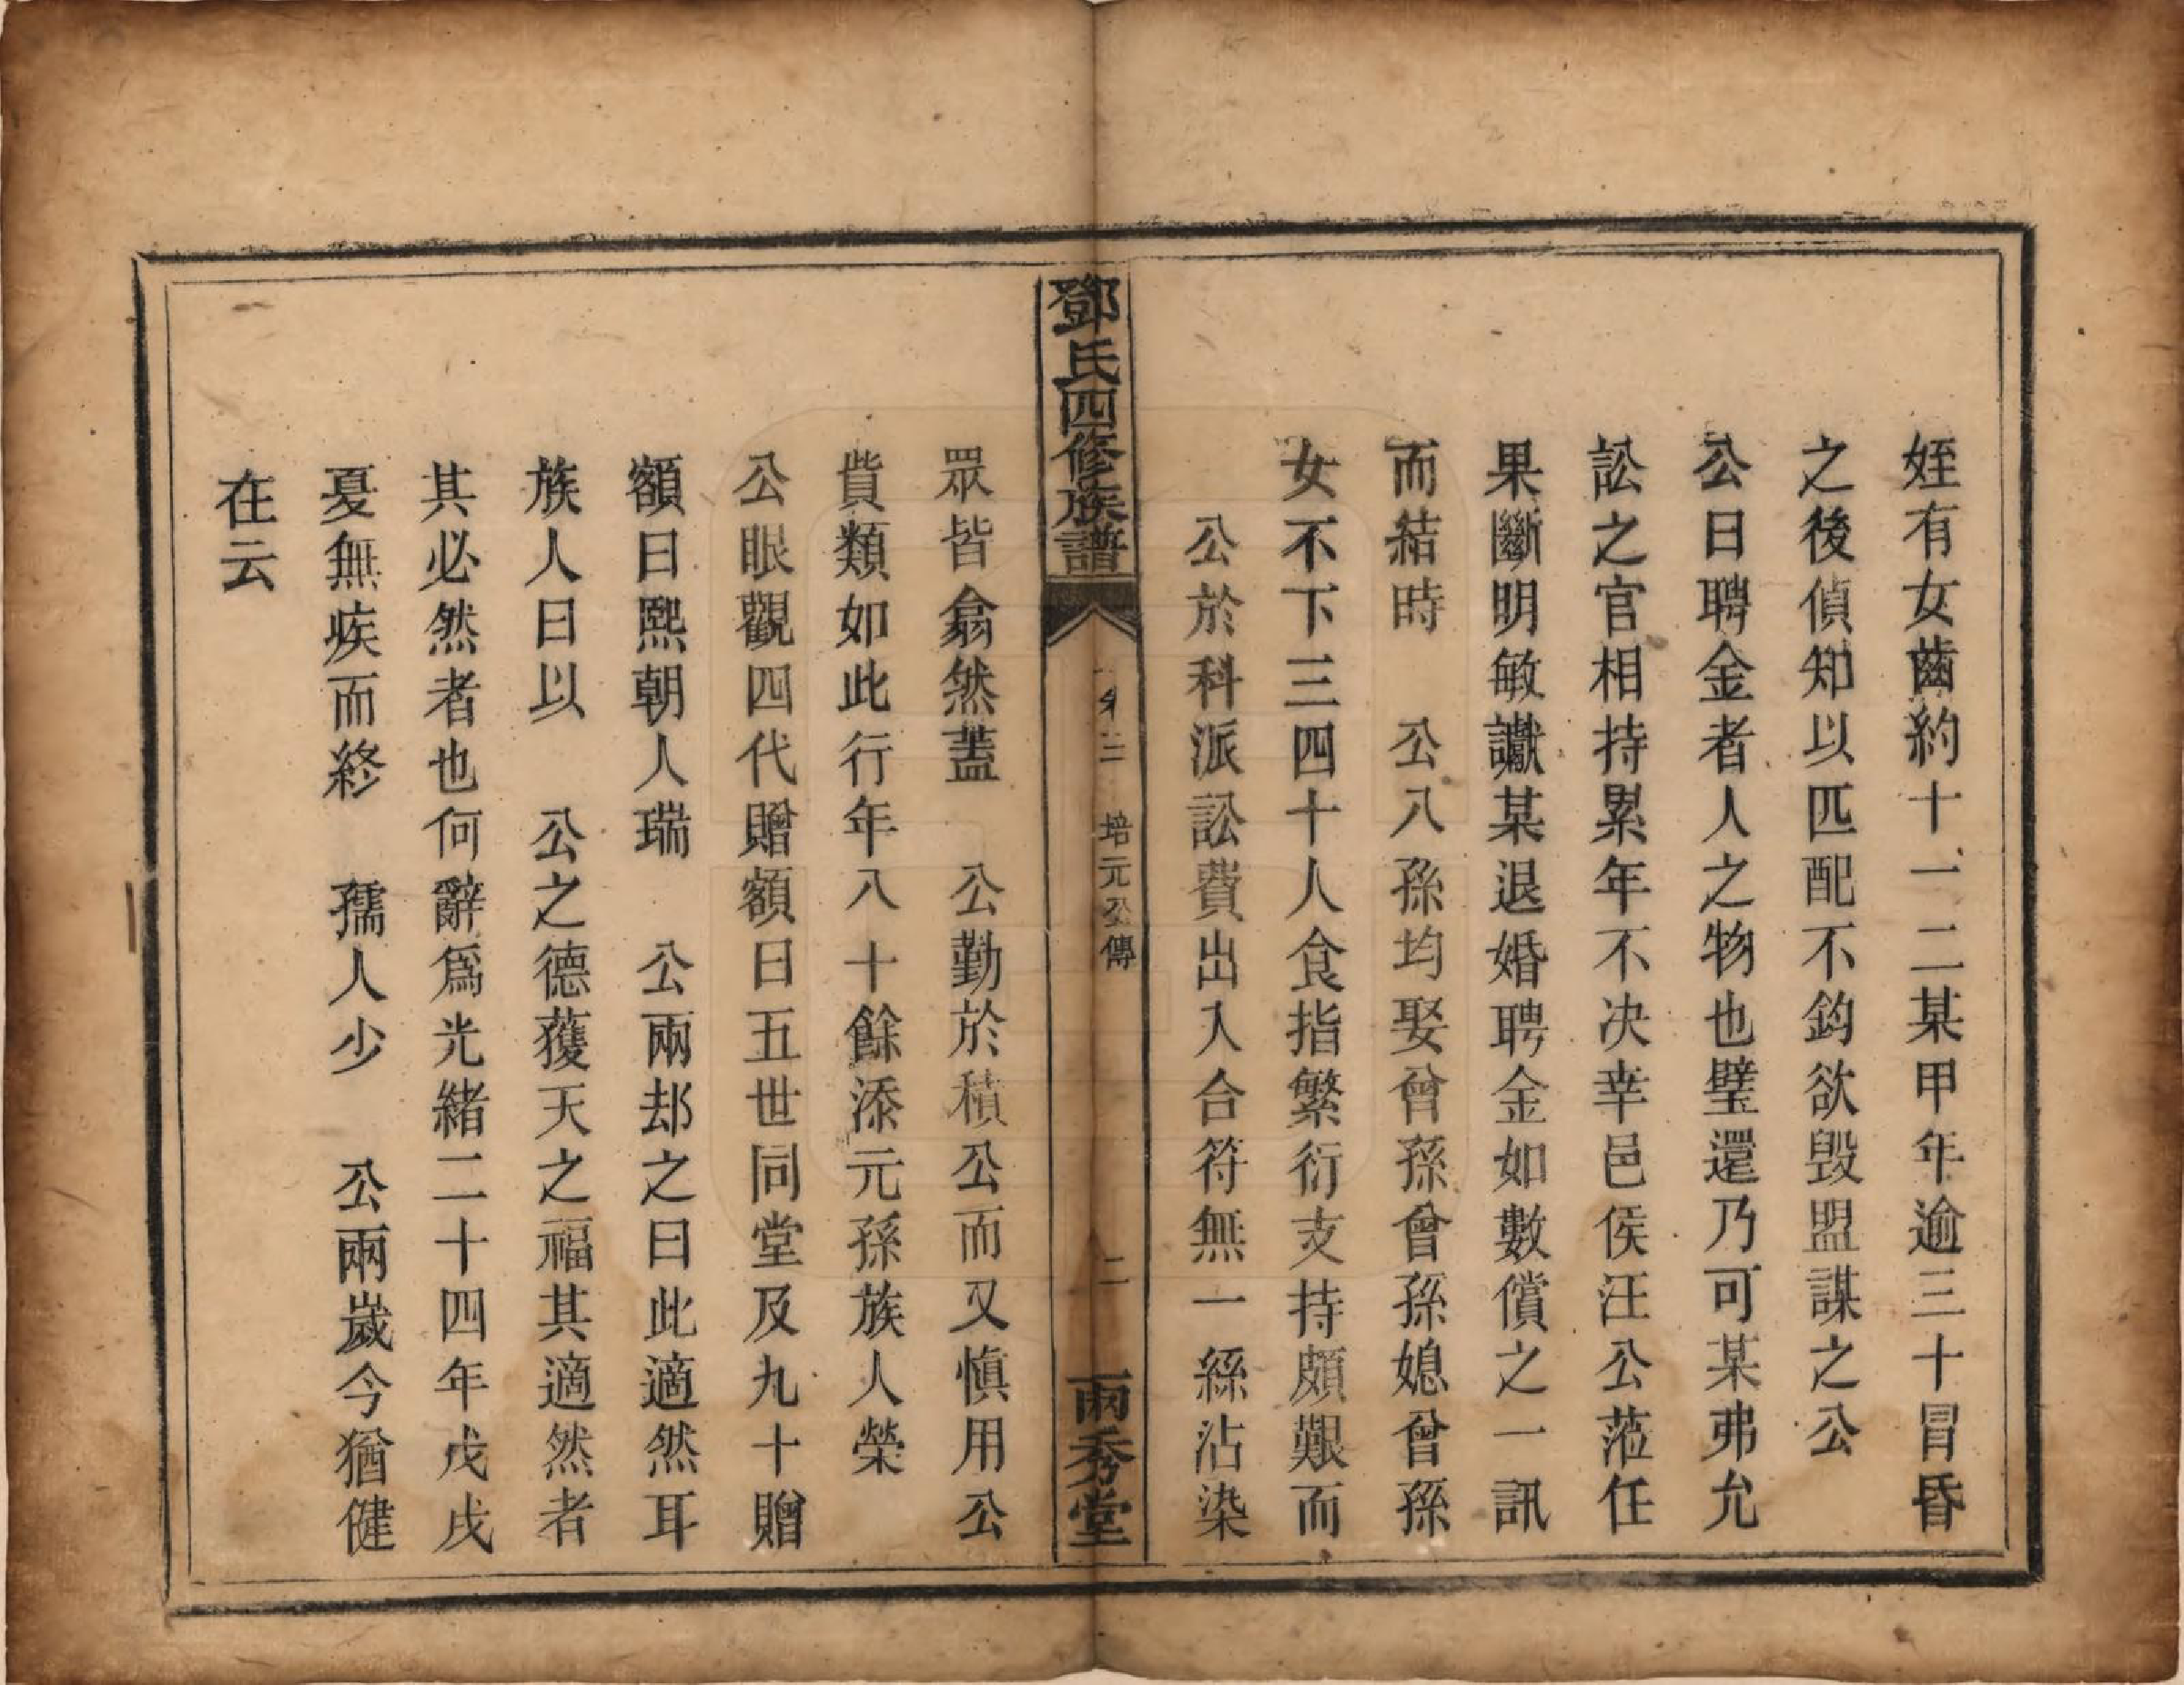 姪有女齒約十一二某甲年逾三十冒昏
之後偵知以匹配不鈞欲毁盟謀之公
公曰聘金者人之物也璧還乃可某弗允
訟之官相持累年不决幸邑侯汪公蒞任
果斷明敏讞某退婚聘金如數償之一訊
而結時　公八孫均娶曾孫曾孫媳曾孫
女不下三四十人食指繁衍支持頗艱而
公於科派訟費出入合符無一絲沾染
鄧氏四修族譜　卷二　培元公傳　二　兩秀堂
眾皆翕然蓋　公勤於積公而又慎用公
貲類如此行年八十餘添元孫族人榮
公眼觀四代贈額曰五世同堂及九十贈
額曰熙朝人瑞　公兩却之曰此適然耳
族人曰以　公之德獲天之福其適然者
其必然者也何辭爲光緒二十四年戊戌
憂無疾而終　孺人少　公兩歲今猶健
在云